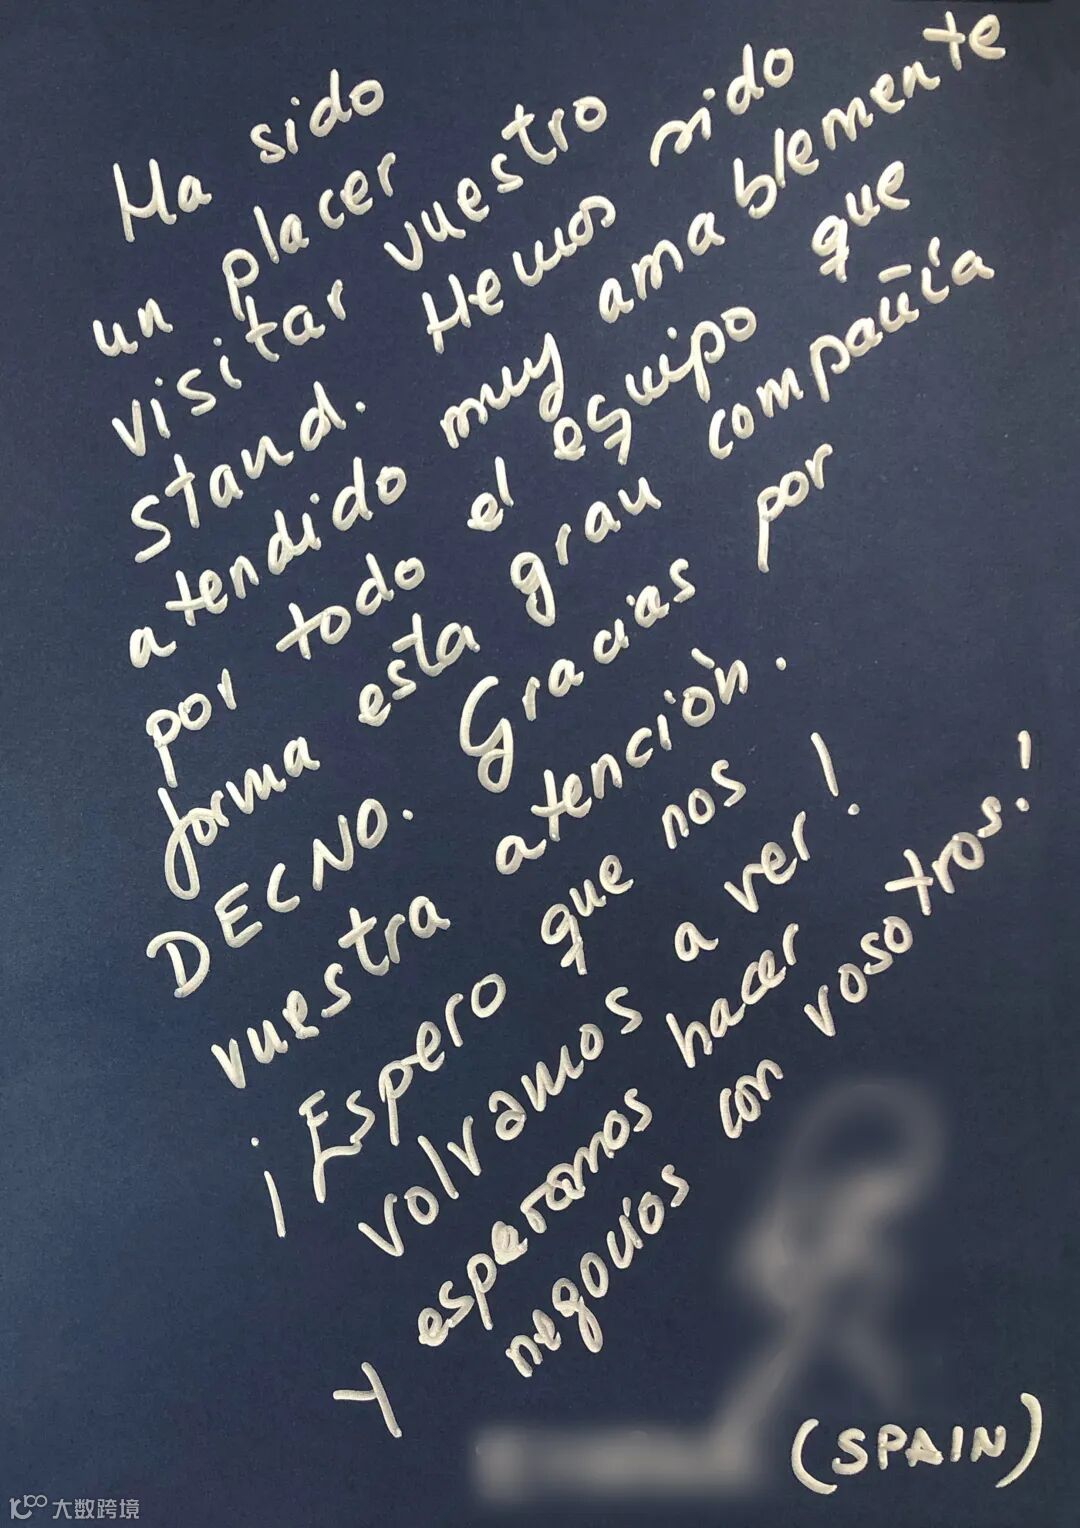 Ha sido
un placer
visitar vuestro
stand. Hemos sido
atendido muy amablemente
por todo el equipo que
forma esta gran compañía
DECNO. Gracias por
vuestra atenciòn.
¡Espero que nos
volvamos a ver!
Y esperamos hacer
negocios con vosotros!
(SPAIN)
大数跨境